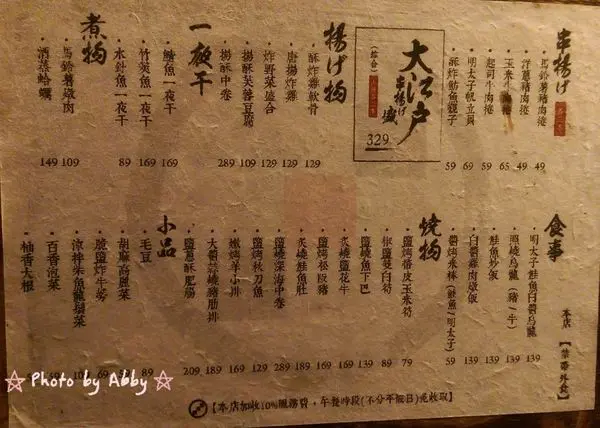 串揚げ
・馬鈴薯豬肉捲 49
・洋蔥豬肉捲 49
・玉米牛肉捲 65
・起司牛肉捲 59
・明太子帆立貝 69
・酥炸魴魚鏡子 59
大江戶
串揚げ
盛
(綜合)
329
揚げ物
・酥炸雞軟骨 129
・唐揚炸雞 129
・炸野菜盛合 129
・揚酥芙蓉豆腐 109
・揚酥中卷 289
一夜干
・鯖魚一夜干 169
・竹筴魚一夜干 169
・水針魚一夜干 89
煮物
・馬鈴薯燉肉 109
・酒蒸蛤蠣 149
食事
本店【禁帶外食】
・明太子鮭魚白醬烏龍 139
・照燒烏龍(豬/牛) 139
・鮭魚炒飯 139
・白醬雞肉燉飯 139
59
燒物
・鹽烤帶皮玉米筍 79
89
・鹽燒魚下巴 139
・炙燒鹽花牛 169
・鹽烤松阪豬 169
・炙燒鮭魚肚
・鹽燒深海中卷 289
・鹽烤秋刀魚 129
・嫩烤羊小排 169
・大醬蒜燒豬肋排 189
・鹽蔥酥肥腸 209
小品
・毛豆 89
・胡麻高麗菜
・脆鹽炸牛蒡 69
・百香泡菜
・柚香大根
【本店加收10%服務費,午餐時段(不分平假日)免收取】
☆ Photo by Abby ☆